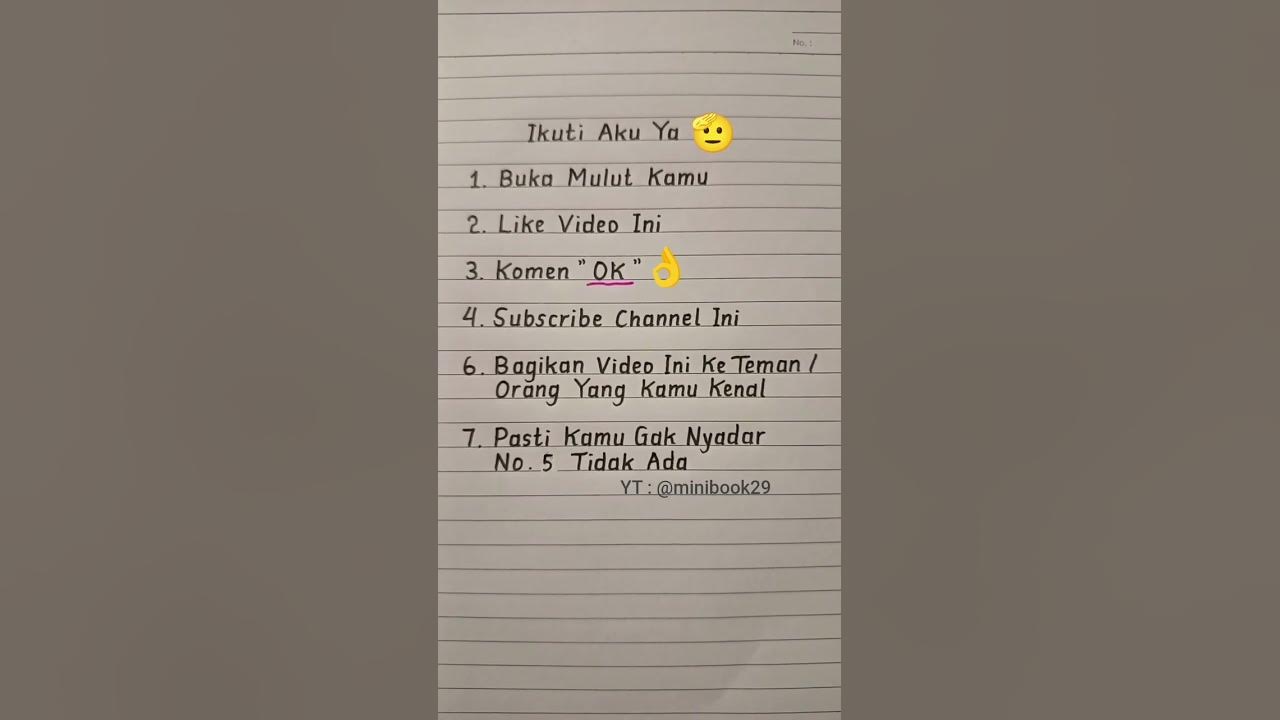 No. :
Ikuti Aku Ya 🫡
1. Buka Mulut Kamu
2. Like Video Ini
3. Komen "OK" 👌
4. Subscribe Channel Ini
6. Bagikan Video Ini Ke Teman /
Orang Yang Kamu Kenal
7. Pasti Kamu Gak Nyadar
No. 5 Tidak Ada
YT : @minibook29